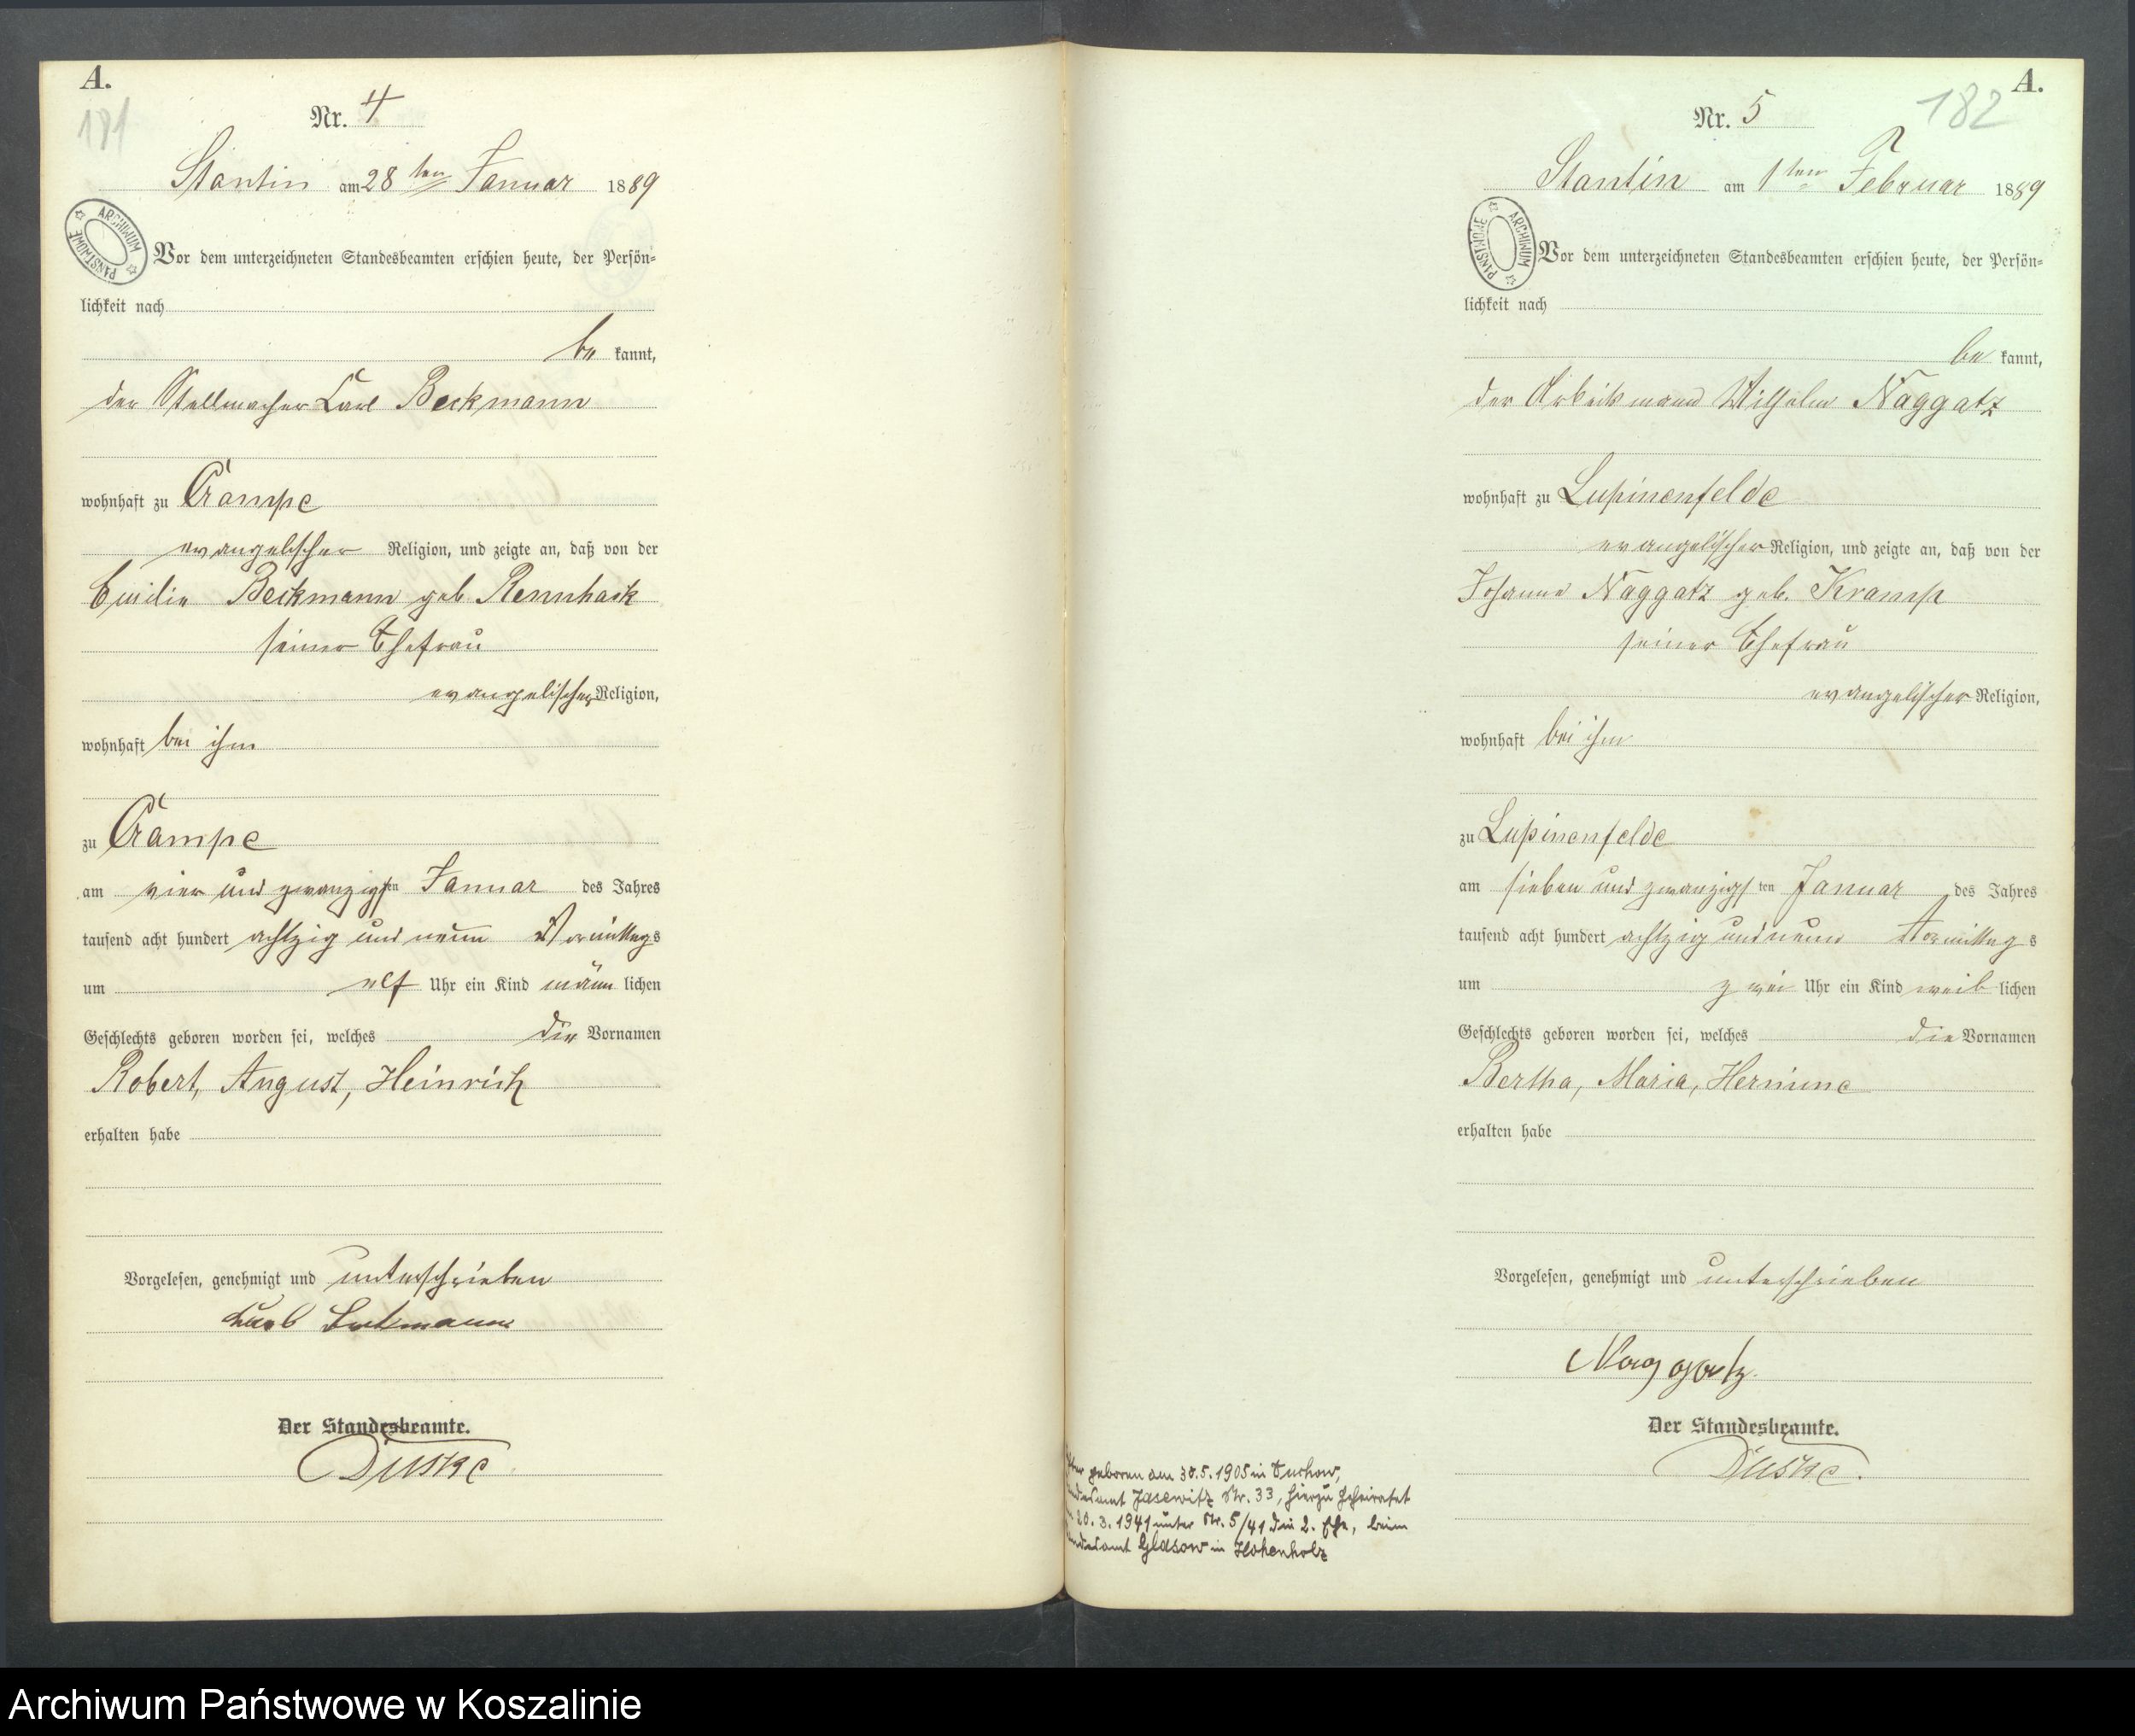 A.
181
Nr. 4
Stantin am 28ten Januar 1889
ARCHIWUM PAŃSTWOWE
Vor dem unterzeichneten Standesbeamten erschien heute, der Persön=
lichkeit nach
be kannt,
der Stellmacher Carl Beckmann
wohnhaft zu Crampe
evangelischer Religion, und zeigte an, daß von der
Emilie Beckmann geb Rennhack
seiner Ehefrau
evangelischer Religion,
wohnhaft bei ihm
zu Crampe
am vier und zwanzigsten Januar des Jahres
tausend acht hundert achtzig und neun Vormittags
um elf Uhr ein Kind männ lichen
Geschlechts geboren worden sei, welches die Vornamen
Robert, August, Heinrich
erhalten habe
Vorgelesen, genehmigt und unterschrieben
Carl Beckmann
Der Standesbeamte.
Duske
A.
182
Nr. 5
Stantin am 1ten Februar 1889
ARCHIWUM PAŃSTWOWE
Vor dem unterzeichneten Standesbeamten erschien heute, der Persön=
lichkeit nach
be kannt,
der Arbeitsmann Wilhelm Naggatz
wohnhaft zu Lupinenfelde
evangelischer Religion, und zeigte an, daß von der
Johanne Naggatz geb. Kramp
seiner Ehefrau
evangelischer Religion,
wohnhaft bei ihm
zu Lupinenfelde
am sieben und zwanzigsten Januar des Jahres
tausend acht hundert achtzig und neun Vormittags
um zwei Uhr ein Kind weib lichen
Geschlechts geboren worden sei, welches die Vornamen
Bertha, Maria, Hermine
erhalten habe
Vorgelesen, genehmigt und unterschrieben
Naggatz.
Der Standesbeamte.
Duske.
geboren am 30.5.1905 in
Jasenitz Nr. 33, hierzu geheiratet
20.3.1941 unter Nr. 5/41 die 2. Ehe, beim
Glasow in Hohenholz
Archiwum Państwowe w Koszalinie